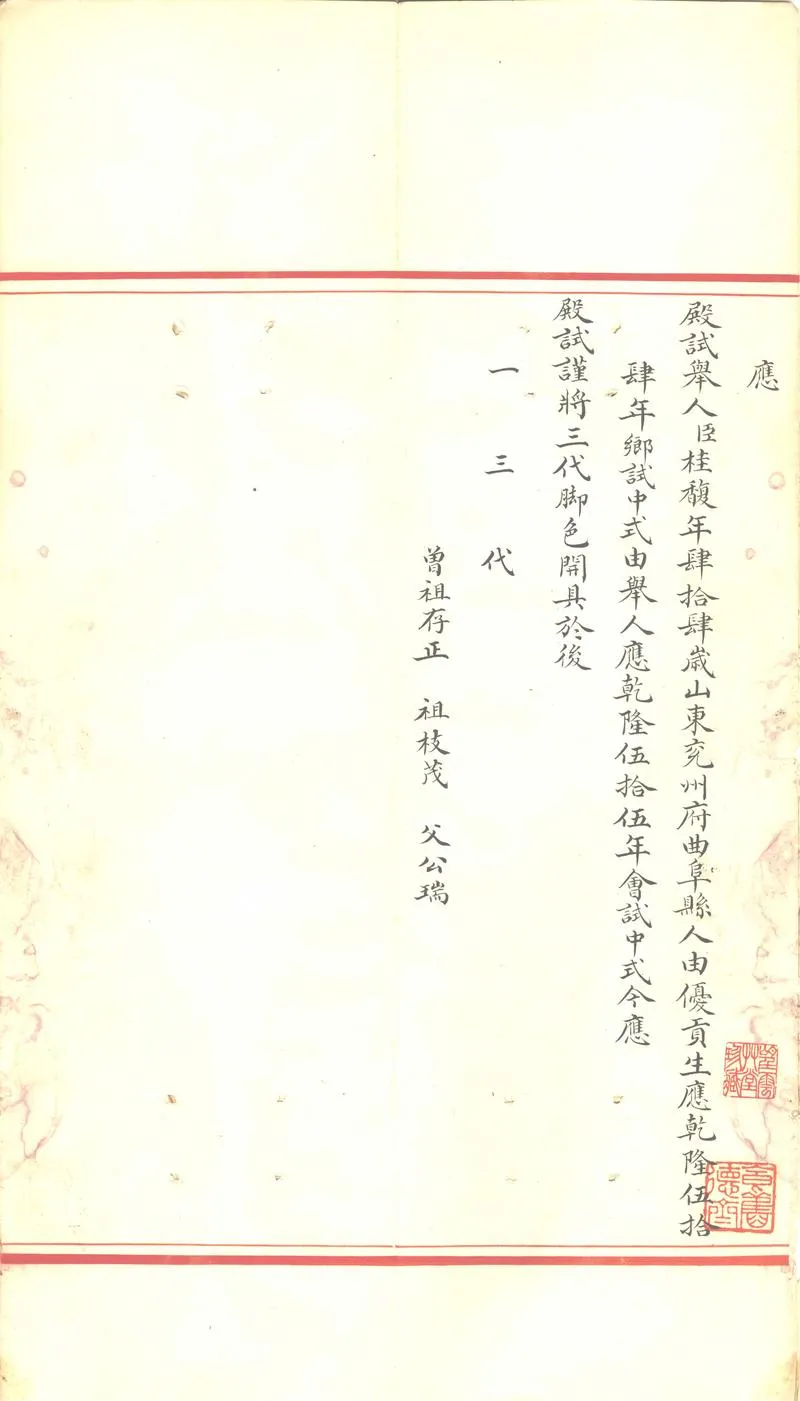 應
殿試舉人臣桂馥年肆拾肆歲山東兖州府曲阜縣人由優貢生應乾隆伍拾
肆年鄉試中式由舉人應乾隆伍拾伍年會試中式今應
殿試謹將三代脚色開具於後
一三代
曾祖存正 祖枝茂 父公瑞